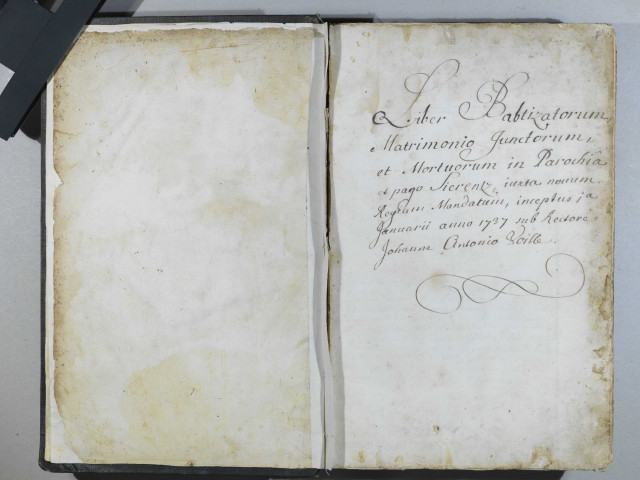 Liber Babtizatorum
Matrimonio Junctorum,
et Mortuorum in Parochiâ
et pago Sierentz, iuxta novum
Regium Mandatum, inceptus 1a
Januarii anno 1737 sub Rectore
Johanne Antonio